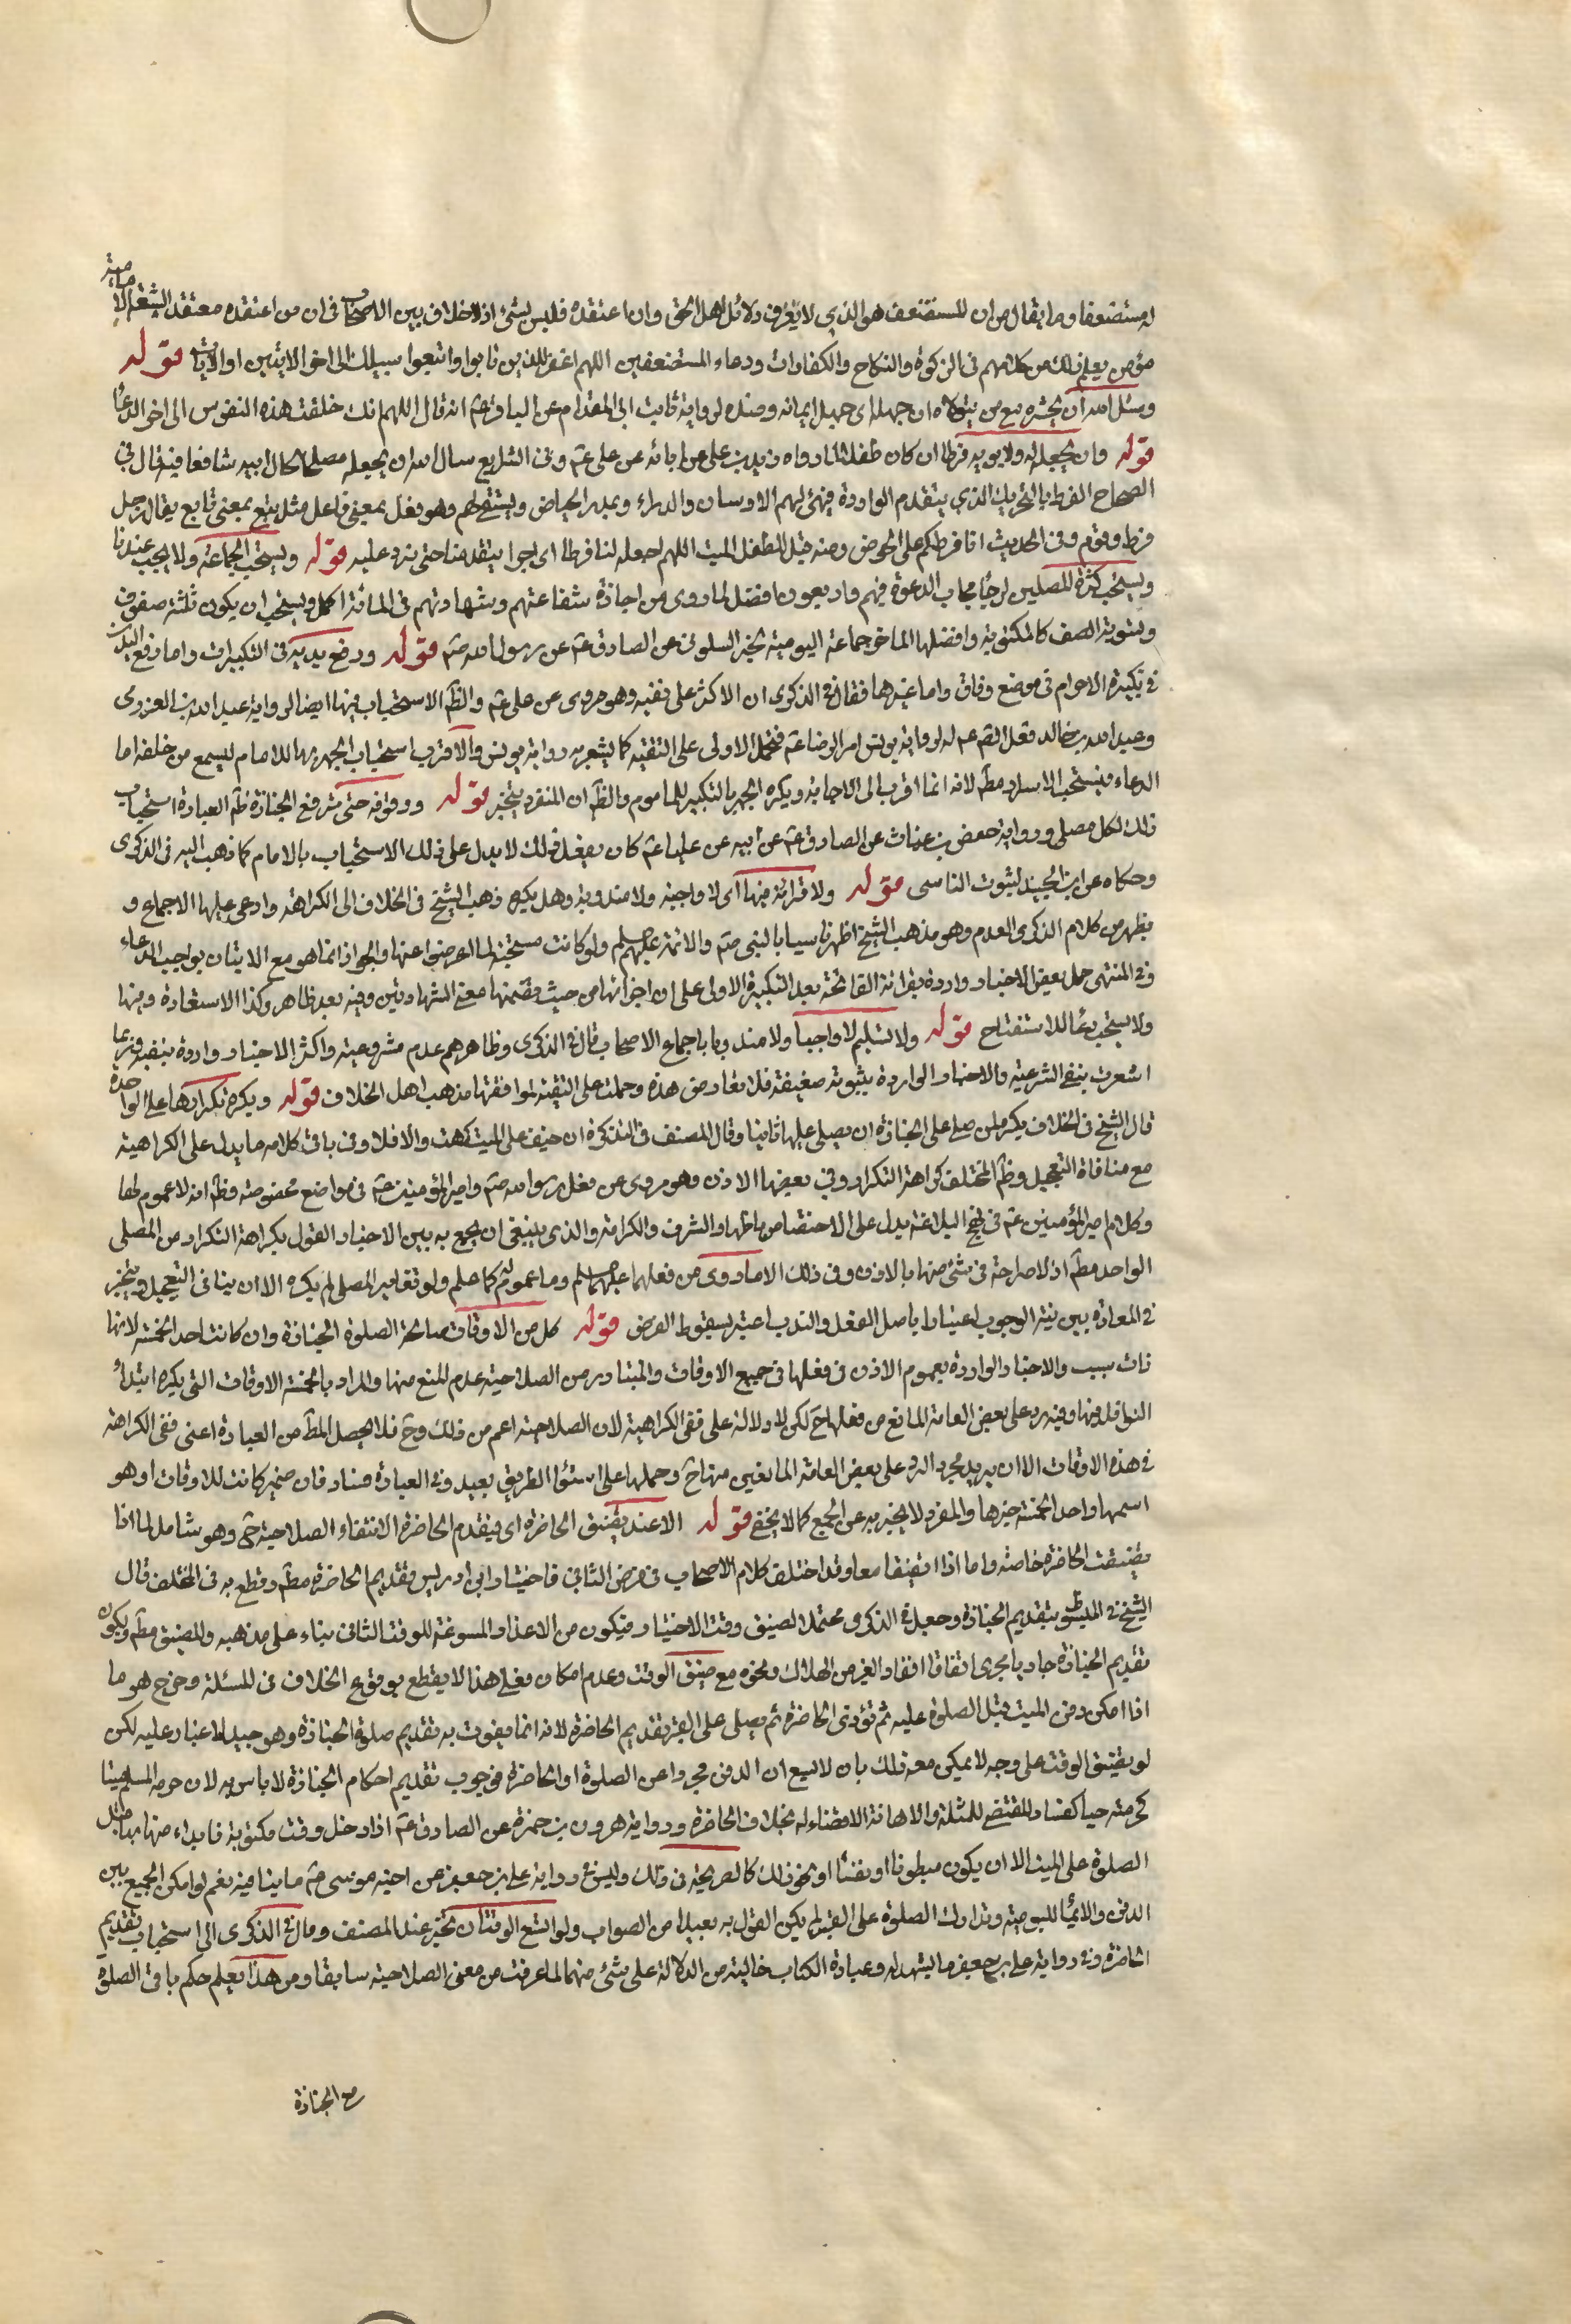 له مستضعفا وما يقال من ان المستضعف هو الذي لا يعرف دلائل اهل الحق وان اعتقده فليس بشئ اذ لا خلاف بين الاصحاب في ان من اعتقده معتقد الشيعة الامامية
مؤمن يعلم ذلك من كلامهم في الزكوة والنكاح والكفارات ودعاء المستضعفين اللهم اغفر للذين تابوا واتبعوا سبيلك الى اخر الايتين او الايات قوله
وسئل الله ان يحشره مع من يتولاه ان جهله اى جهل ايمانه ومنده لرواية ثابت ابى المقدام عن الباقر عم انه قال اللهم انك خلقت هذه النفوس الى اخر الدعاء
قوله وان يجعله له ولابويه فرطا ان كان طفلا لما رواه زيد بن على عن ابائه عن على عم وفى الشرايع سال الله ان يجعله مصلحا لحال ابيه شافعا فيه قال في
الصحاح الفرط بالتحريك الذي يتقدم الواردة فيهئ لهم الارسان والدلاء ويمدر الحياض ويستقى لهم وهو فعل بمعنى فاعل مثل تبع بمعنى تابع يقال رجل
فرط وقوم وفى الحديث انا فرطكم على الحوض ومنه قيل للطفل الميت اللهم اجعله لنا فرطا اى اجرا يتقدمنا حتى نرد عليه قوله ويستحب الجماعة ولا يجب عندنا
ويستحب كثرة المصلين لرجاء مجاب الدعوة فيهم واربعون افضل لما روى من اجازة شفاعتهم وشهادتهم فى المائة اكمل ويستحب ان يكون ثلثة صفوف
وتسوية الصف كالمكتوبة وافضلها الماخر جماعة اليومية لخبر السكونى عن الصادق عم عن رسول الله صم قوله ورفع يديه فى التكبيرات واما رفع اليدين
في تكبيرة الاحرام في موضع وفاق واما غيرها فقال في الذكرى ان الاكثر على نفيه وهو مروى عن على عم والظم الاستحباب فيها ايضا لرواية عبد الله بن العزرمى
وعبد الله بن خالد فعل الصم عم له لرواية يونس امر الرضا عم فتحمل الاولى على التقية كما يشعر به رواية يونس والاقرب استحباب الجهر بها للامام ليسمع من خلفه اما
الدعاء فيستحب الاسرار مطم لانه انما اقرب الى الاجابة ويكره الجهر بالتكبير للماموم والظم ان المنفرد يتخير قوله ووقوفه حتى ترفع الجنازة ظم العبارة استحباب
ذلك لكل مصلى ورواية حفص بن غياث عن الصادق عم عن ابيه عن عليا عم كان يفعل ذلك لا يدل على ذلك الاستحباب بالامام كما ذهب اليه فى الذكرى
وحكاه عن ابن الجنيد لثبوت التاسى قوله ولا قرائة فيها اى لا واجبة ولا مندوبة وهل يكره ذهب الشيخ في الخلاف الى الكراهة وادعى عليها الاجماع و
يظهر من كلام الذكرى العدم وهو مذهب الشيخ اظهر تاسيا بالنبى صم والائمة عليهم السلم ولو كانت مستحبة لما اعرضوا عنها والجواز انما هو مع الاتيان بواجب الدعاء
وفي المنتهى حمل بعض الاخبار واردة بقرائة الفاتحة بعد التكبيرة الاولى على ان اجزائها من حيث تضمنها معنى الشهادتين وفيه بعد ظاهر وكذا الاستعاذة فيها
ولا يستحب دعاء الاستفتاح قوله ولا تسليم لا واجبا ولا مندوبا باجماع الاصحاب قال في الذكرى وظاهرهم عدم مشروعيته واكثر الاخبار واردة بنفيه وربما
اشعرت بنفى الشرعية والاخبار الواردة بثبوته ضعيفة فلا تعارض هذه وحملت على التقية لموافقتها مذهب اهل الخلاف قوله ويكره تكرارها على الواحدة
قال الشيخ في الخلاف يكره لمن صلى على الجنازة ان يصلى عليها ثانيا وقال المصنف في التذكرة ان خيف على الميت كرهت والا فلا وفى باقى كلامه ما يدل على الكراهية
مع منافاة التعجيل وظم المختلف كراهة التكرار وفي بعضها الاذن وهو مروى عن فعل رسول الله صم وامير المؤمنين عم فى مواضع مخصوصة وظم انه لا عموم لها
وكلام امير المؤمنين عم فى نهج البلاغة يدل على الاختصاص باظهار الشرف والكرامة والذى ينبغى ان يجمع به بين الاخبار القول بكراهة التكرار من المصلى
الواحد مطم اذ لا صراحة في شئ منها بالاذن وفى ذلك الا ما روى من فعلهما عليهما السلم وما عموم له كما علم ولو تغاير المصلى لم يكره الا ان ينافى التعجيل ويتخير
في المعادة بين نية الوجوب اعتبارا باصل الفعل والندب اعتبارا بسقوط الفرض قوله كل من الاوقات صالحة الصلوة الجنازة وان كانت احد الخمسة لانها
ذات سبب والاخبار الواردة بعموم الاذن فى فعلها فى جميع الاوقات والمتبادر من الصلاحية عدم المنع منها والمراد بالخمسة الاوقات التى يكره ابتداء
النوافل فيها وفيه رد على بعض العامة المانع من فعلها ح لكن لا دلالة على نفى الكراهية لان الصلاحية اعم من ذلك وح فلا يحصل المطم من العبارة اعنى نفى الكراهة
في هذه الاوقات الا ان يريد مجرد الرد على بعض العامة المانعين منها ح وحملها على استواء الطريق بعيد وفي العبارة مناد فان ضمير كانت للاوقات او هو
اسمها واحد الخمسة خبرها والمفرد لا يخبر به عن الجمع كما لا يخفى قوله الا عند تضيق الحاضرة اى فيقدم الحاضرة الانتفاء الصلاحية ح وهو شامل لما اذا
تضيقت الحاضرة خاصة واما اذا تضيقا معا وقد اختلف كلام الاصحاب فى فرض الثانى فاختيار ابن ادريس تقديم الحاضرة مطم وقطع به فى المختلف قال
الشيخ في المبسوط بتقديم الجنازة وجعل في الذكرى محتمل الضيق وقت الاختيار فيكون من الاعذار المسوغة للوقت الثانى بناء على مذهبه والمضيق مطم ويكون
تقديم الجنازة جاريا مجرى اتفاقا انقاذ الغير من الهلاك ونحوه مع ضيق الوقت وعدم امكان فعلى هذا لا يقطع بوقوع الخلاف فى المسئلة وخرج هو ما
اذا امكن دفن الميت قبل الصلوة عليه ثم تؤدى الحاضرة ثم يصلى على القبر بتقديم الحاضرة لانه انما يفوت به تقديم صلوة الجنازة وهو جيد لا غبار عليه لكن
لو تضيق الوقت على وجه لا يمكن معه ذلك بان لا يسع ان الدفن مجردا عن الصلوة او الحاضرة فوجوب تقديم احكام الجنازة لا باس به لان حرمة المسلم ميتا
كحرمته حيا كفساد المقتضى للمثلة والاهانة الا قضاء له بخلاف الحاضرة ورواية هرون بن حمزة عن الصادق عم اذا دخل وقت مكتوبة فابداء منها بها قبل
الصلوة على الميت الا ان يكون مبطونا او نفساء او نحو ذلك كالصريحة فى ذلك وليس في رواية على بن جعفر عن اخيه موسى عم ما ينافيه نعم لو امكن الجمع بين
الدفن والايماء لليومية وتدارك الصلوة على القبر لم يكن القول به بعيدا من الصواب ولو اتسع الوقتان تخير عند المصنف ومال في الذكرى الى استحباب تقديم
الحاضرة وفى رواية على بن جعفر ما يشهد له وعبارة الكتاب خالية من الدلالة على شئ منهما لما عرفت من معنى الصلاحية سابقا ومن هذا يعلم حكم باقى الصلوة
مع الجنازة